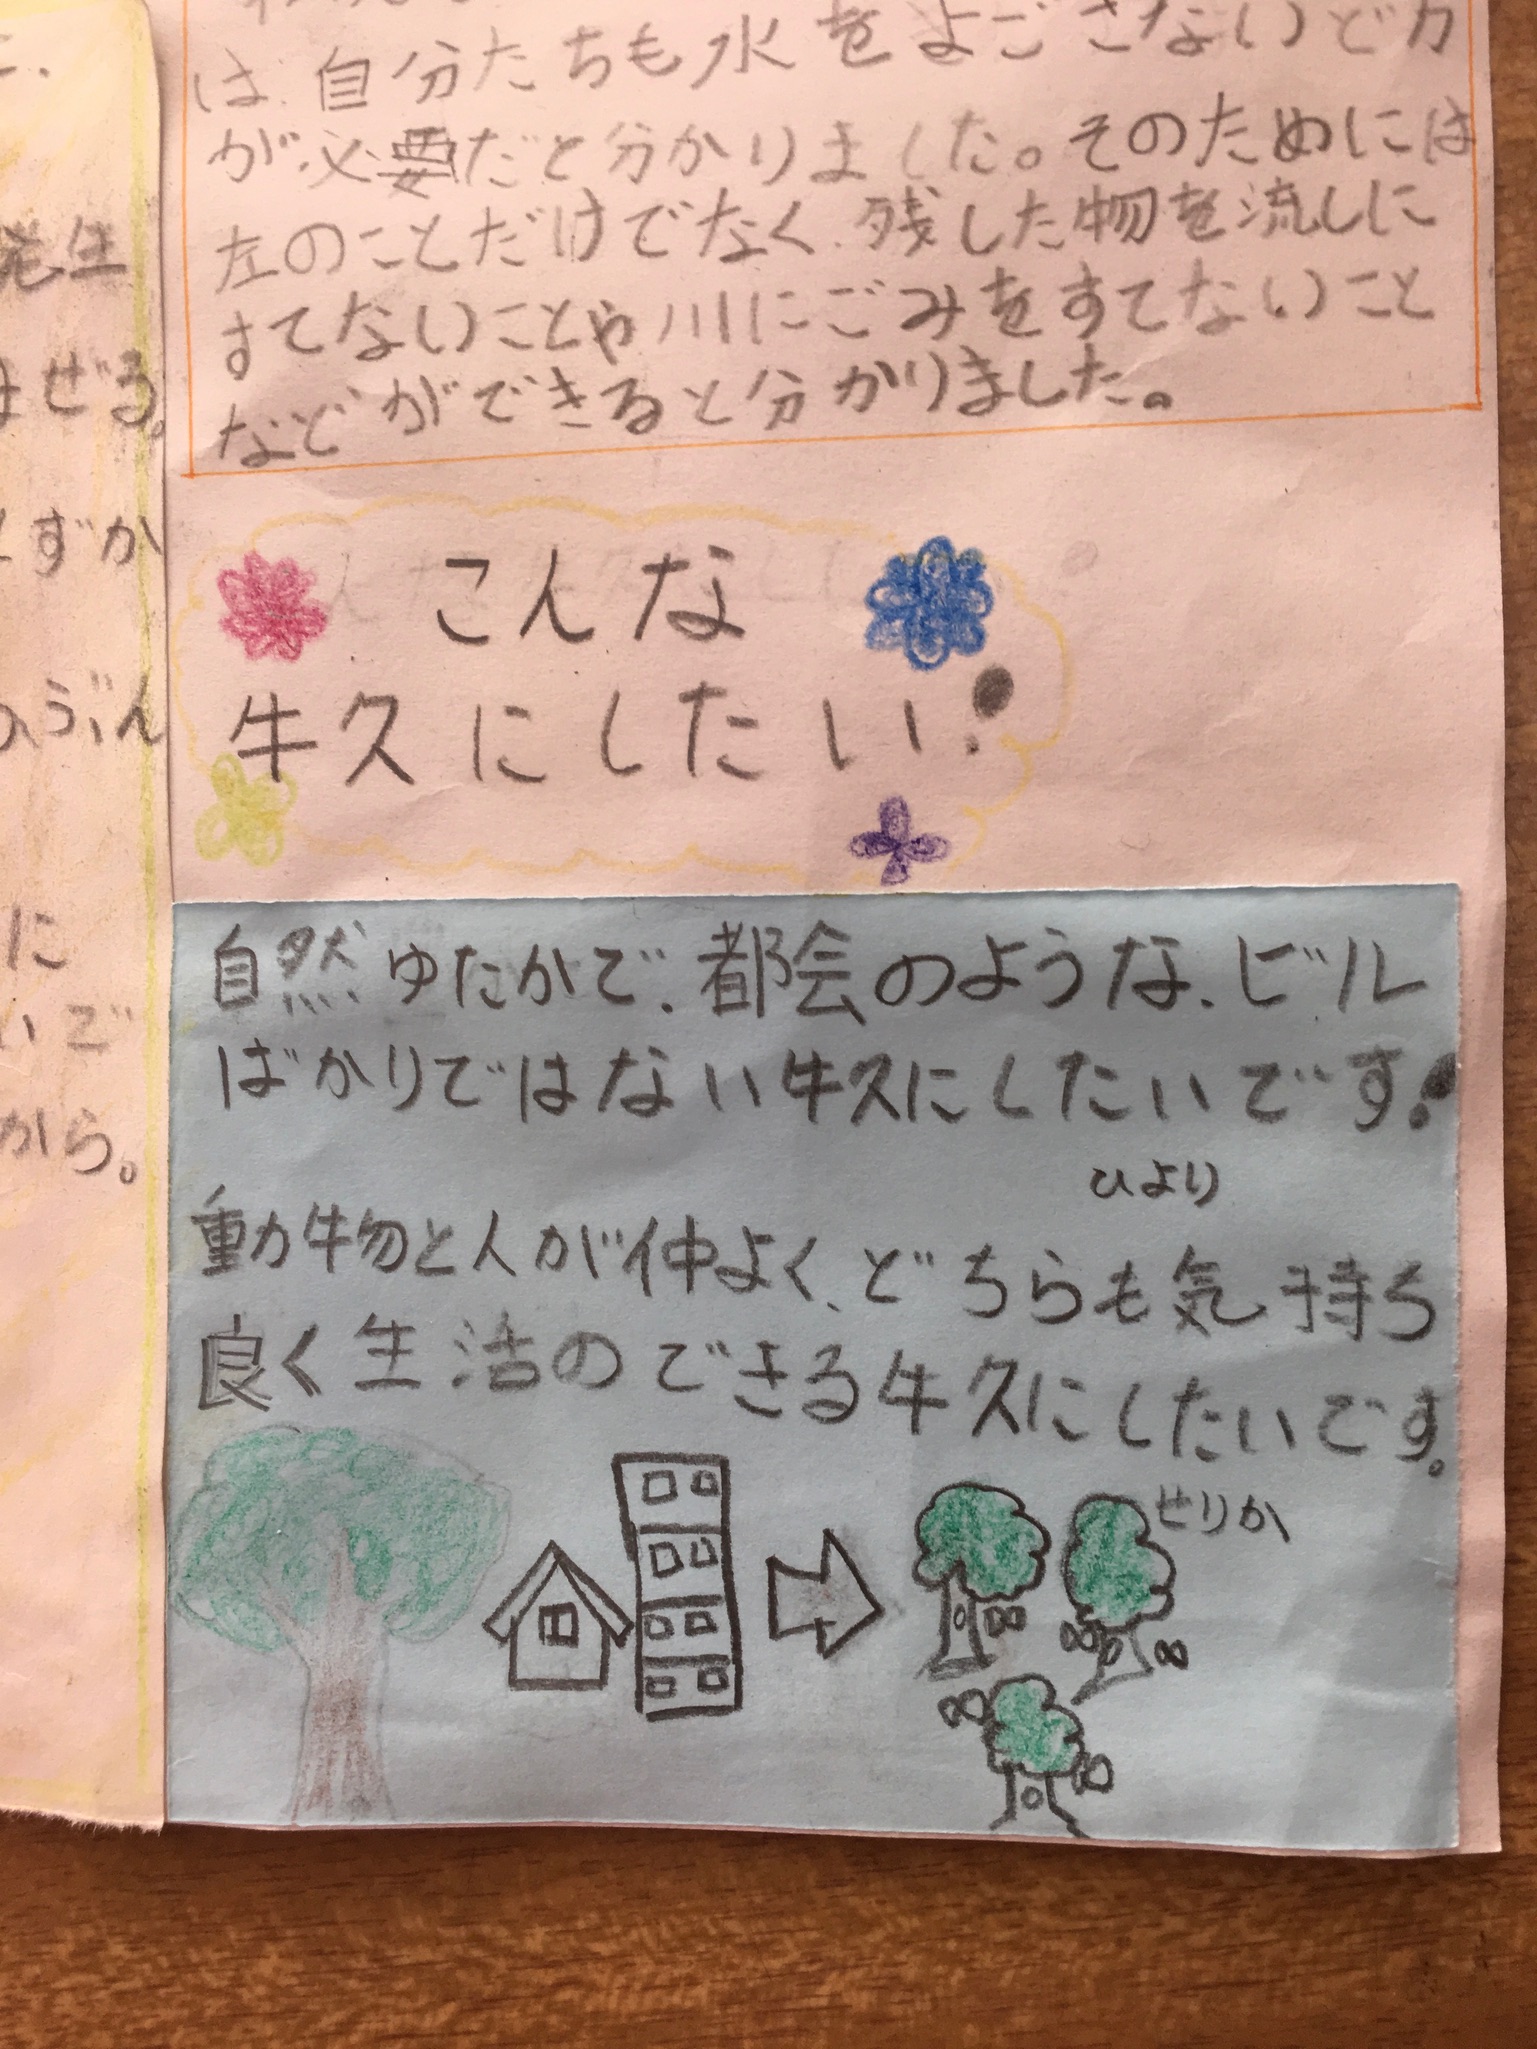 は、自分たちも水をよごさないど力
が必要だと分かりました。そのためには
左のことだけでなく、残した物を流しに
すてないことや川にごみをすてないこと
などができると分かりました。
こんな
牛久にしたい!
自然ゆたかで、都会のような、ビル
ばかりではない牛久にしたいです!
ひより
動物と人が仲よく、どちらも気持ち
良く生活のできる牛久にしたいです。
せりか
発生
まぜる。
ずか
ぶん
に
いご
から。